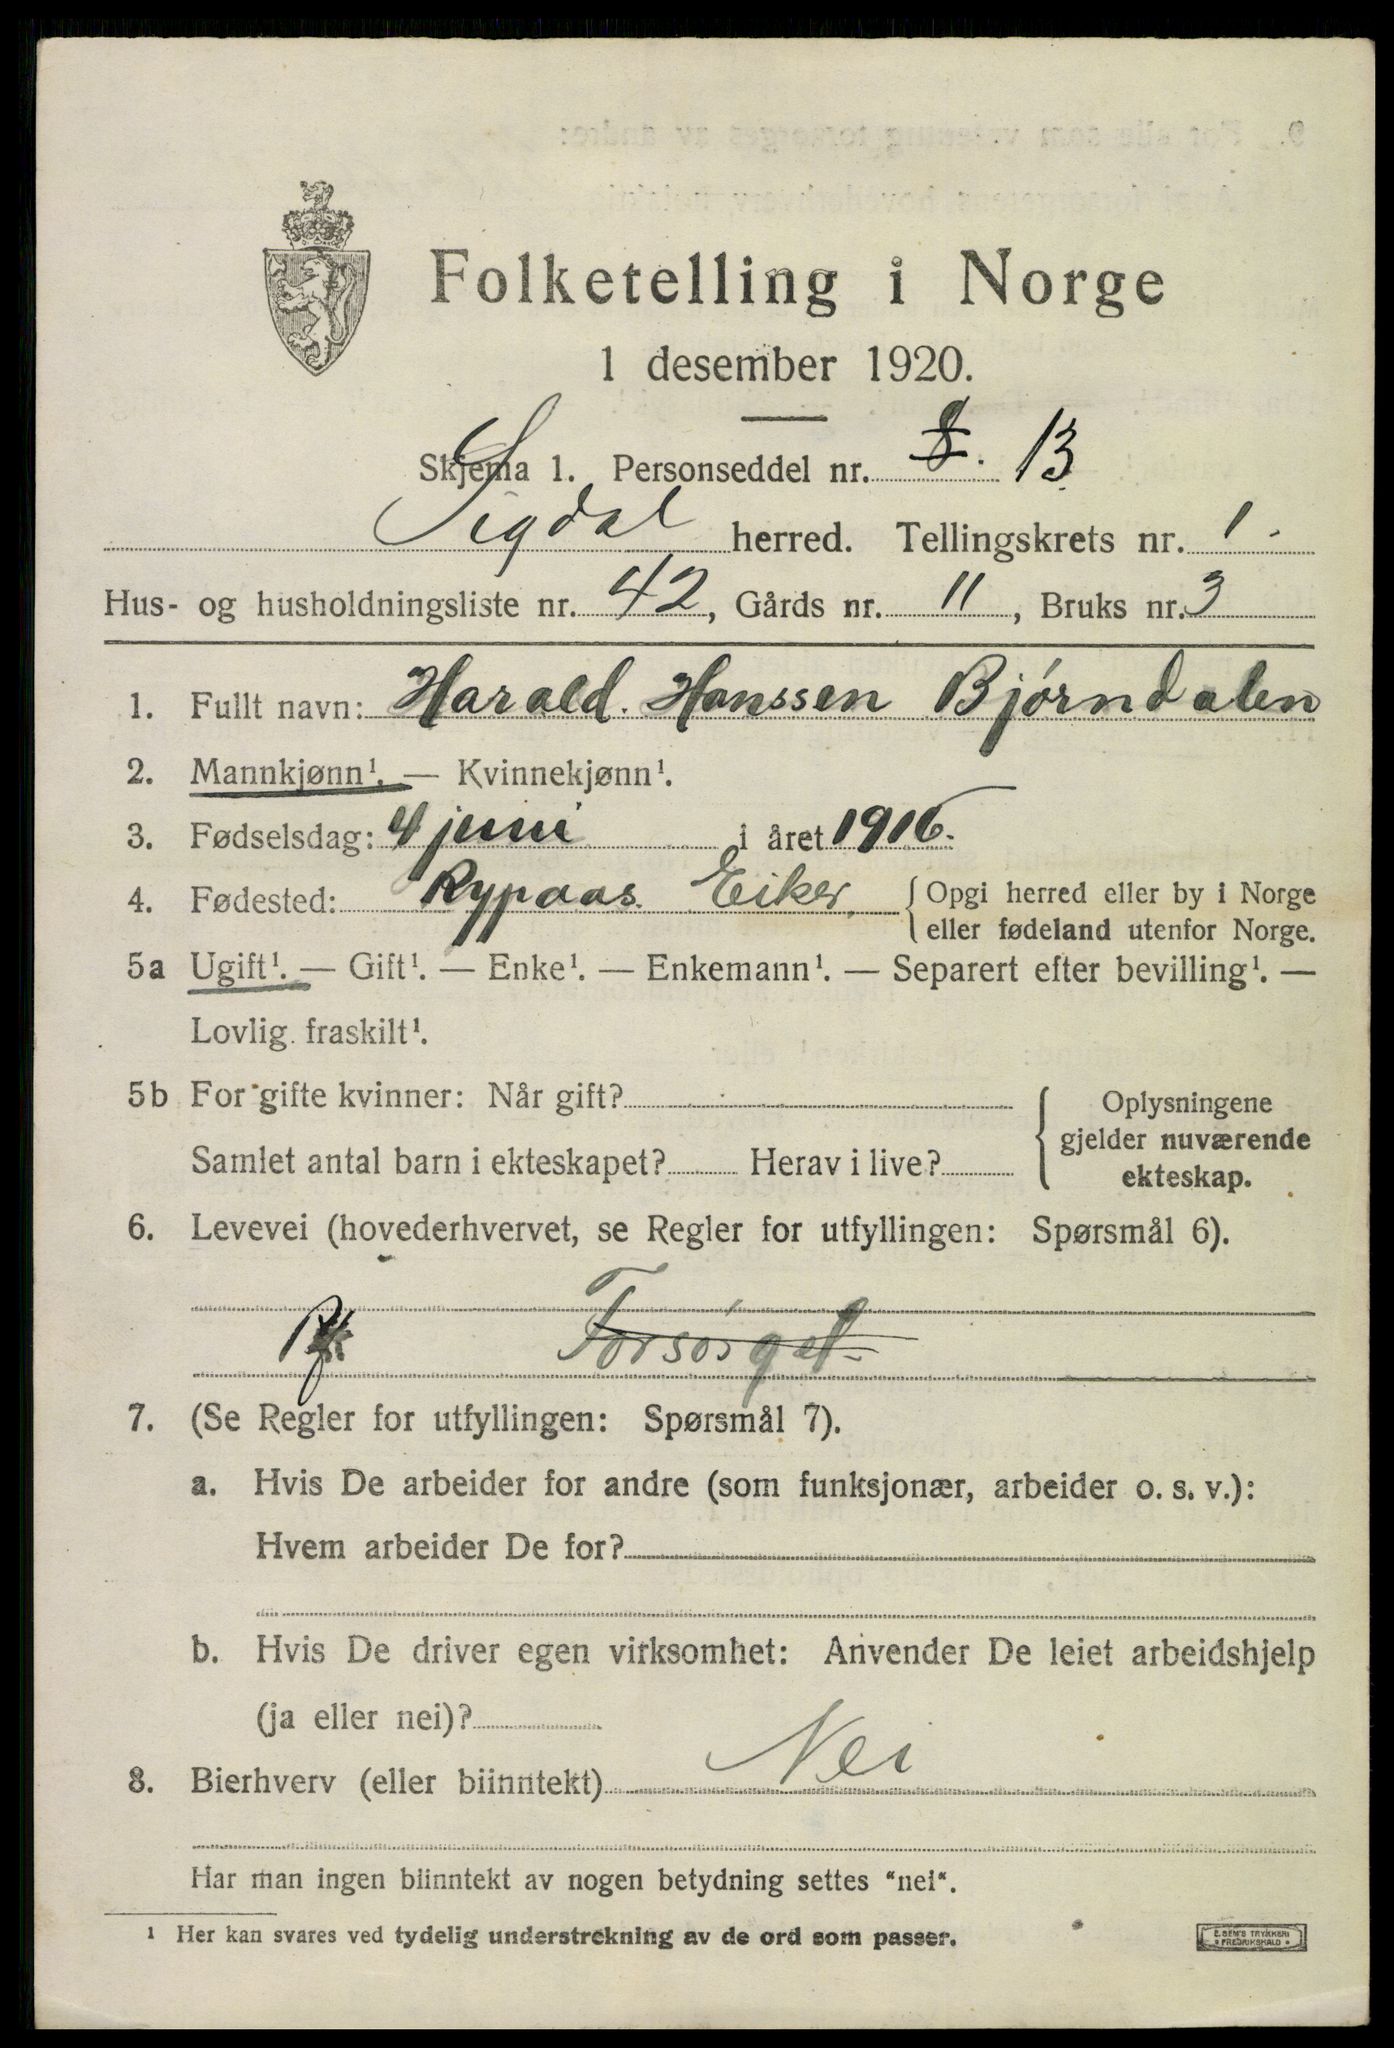 Folketelling i Norge
1 desember 1920.
Skjema 1. Personseddel nr. 8. 13
Sigdal herred. Tellingskrets nr. 1.
Hus- og husholdningsliste nr. 42, Gårds nr. 11, Bruks nr. 3
1. Fullt navn: Harald. Hanssen Bjørndalen
2. Mannkjønn¹. — Kvinnekjønn¹.
3. Fødselsdag: 4 juni i året 1916.
4. Fødested: Rypaas Eiker, { Opgi herred eller by i Norge
eller fødeland utenfor Norge.
5a Ugift¹. — Gift¹. — Enke¹. — Enkemann¹. — Separert efter bevilling¹. —
Lovlig fraskilt¹.
5b For gifte kvinner: Når gift?
Samlet antal barn i ekteskapet? Herav i live?
Oplysningene
gjelder nuværende
ekteskap.
6. Levevei (hovederhvervet, se Regler for utfyllingen: Spørsmål 6).
Forsørget
7. (Se Regler for utfyllingen: Spørsmål 7).
a. Hvis De arbeider for andre (som funksjonær, arbeider o. s. v.):
Hvem arbeider De for?
b. Hvis De driver egen virksomhet: Anvender De leiet arbeidshjelp
(ja eller nei)?
8. Bierhverv (eller biinntekt) Nei
Har man ingen biinntekt av nogen betydning settes "nei".
¹ Her kan svares ved tydelig understrekning av de ord som passer.
E. SEM'S TRYKKERI
FREDRIKSHALD